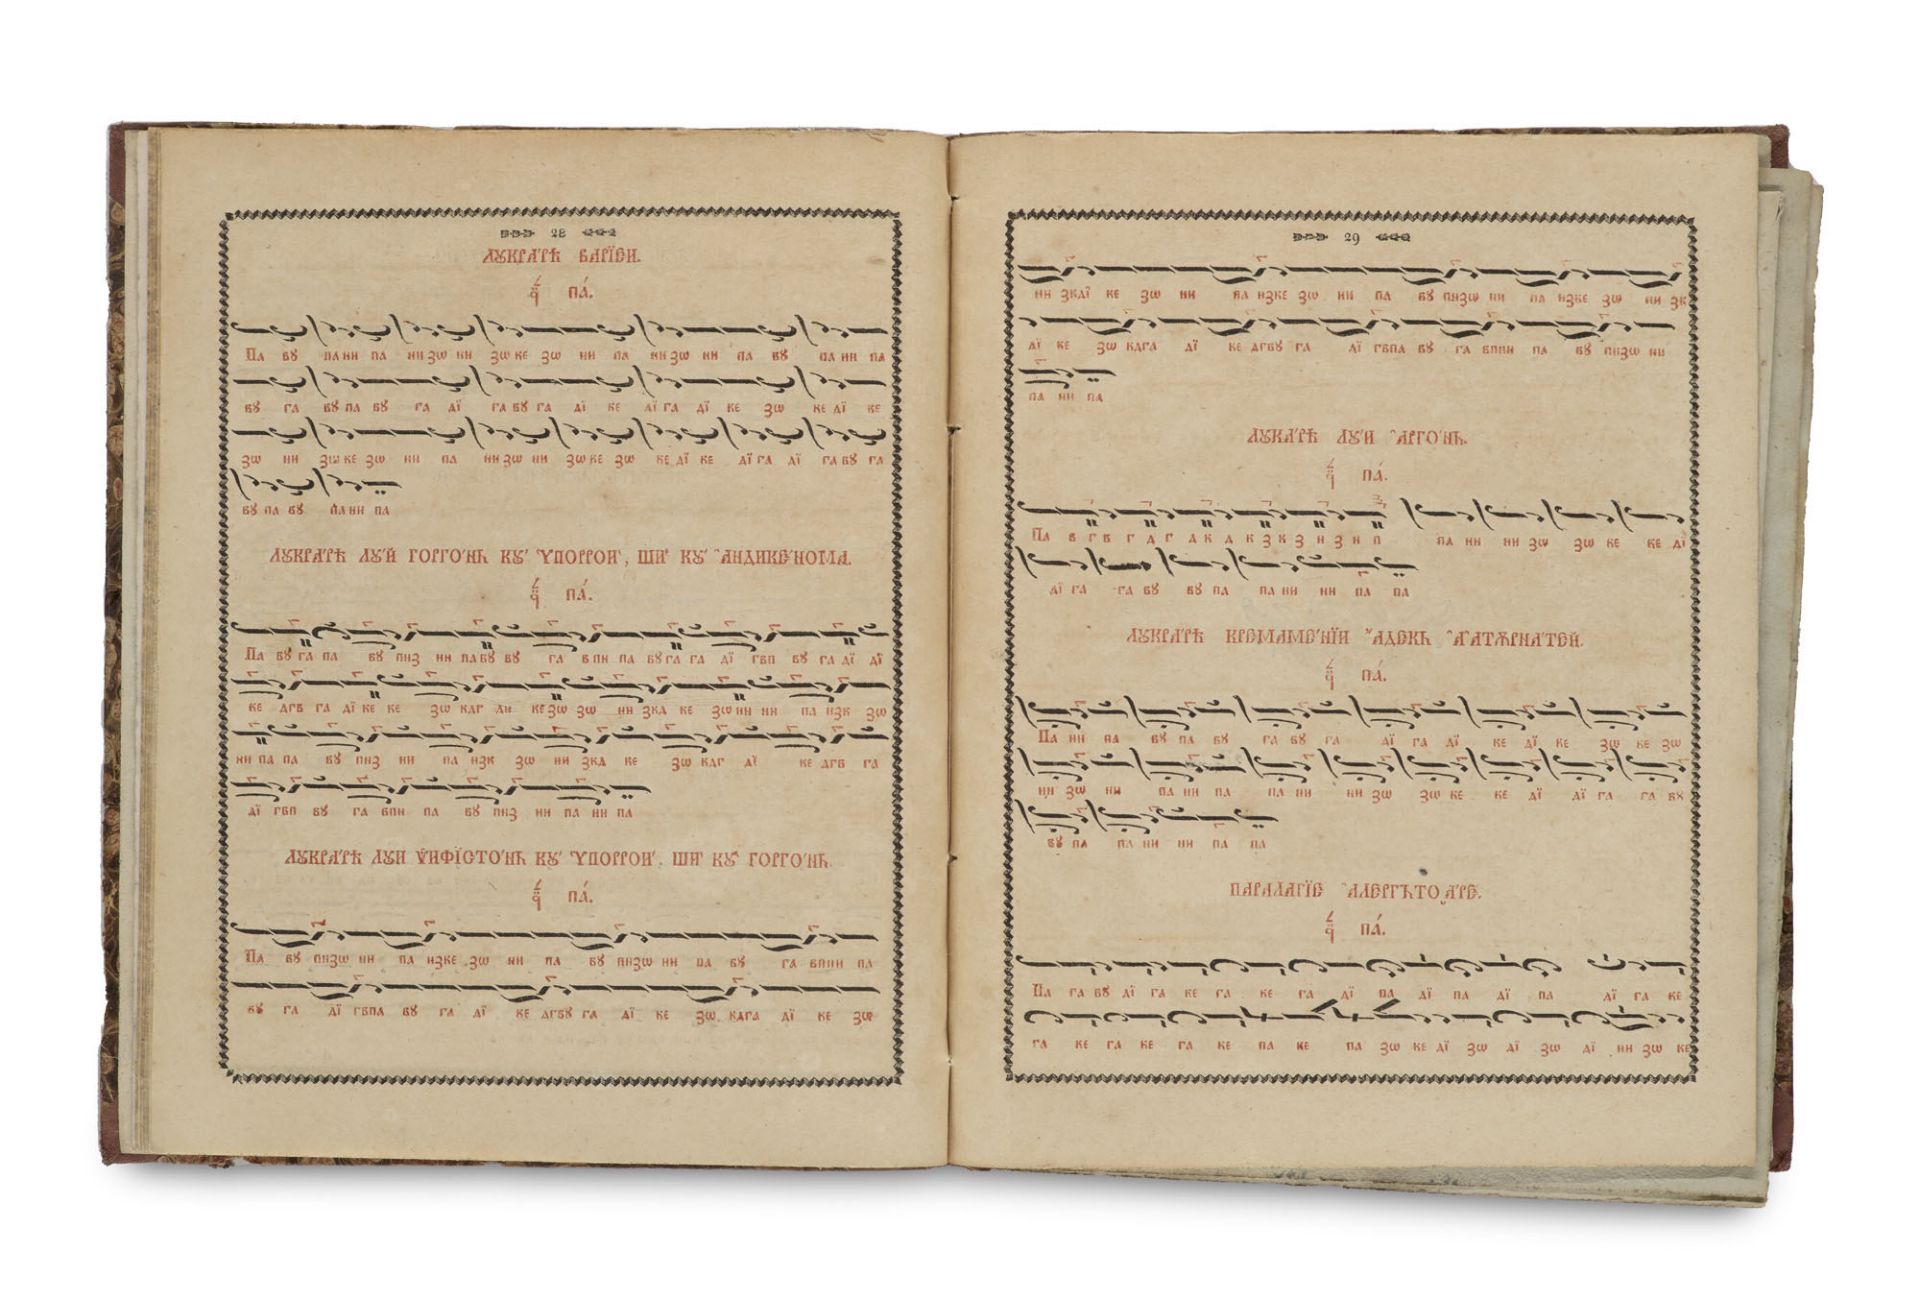 28
ЛꙊКРА́РѢ ВАРІ́ЕИ.
ПА́.
Па вꙋ па ни па ни зѡ ни зѡ ке зѡ ни па ни зѡ ни па вꙋ па ни па
вꙋ га вꙋ па вꙋ га дї га вꙋ га дї ке дї га дї ке зѡ ке дї ке
зѡ ни зѡ ке зѡ ни па ни зѡ ни зѡ ке зѡ ке дї ке дї га дї га вꙋ га
вꙋ па вꙋ па ни па
ЛꙊКРА́РѢ ЛꙊЙ ГОРГО́НЬ КꙊ ЎПОРРОИ, ШИ КꙊ АНДИКЕ́НОМА.
ПА́.
Па вꙋ га па вꙋ пнз ни па вꙋ вꙋ га впн па вꙋ га га дї гвп вꙋ га дї дї
ке дгв га дї ке ке зѡ кдг дї ке зѡ зѡ ни зкд ке зѡ ни ни па нзк зѡ
ни па па вꙋ пнз ни па нзк зѡ ни зкд ке зѡ кдг дї ке дгв га
дї гвп вꙋ га впн па вꙋ пнз ни па ни па
ЛꙊКРА́РѢ ЛꙊИ ѰИФІСТО́НЬ КꙊ ЎПОРРОИ, ШИ КꙊ ГОРГО́НЬ.
ПА́.
Па вꙋ пнзѡ ни па нзке зѡ ни па вꙋ пнзѡ ни па вꙋ га впни па
вꙋ га дї гвпа вꙋ га дї ке дгвꙋ га дї ке зѡ кдга дї ке зѡ
29
ни зкдї ке зѡ ни па нзке зѡ ни па вꙋ пнзѡ ни па нзке зѡ ни зк
дї ке зѡ кдга дї ке дгвꙋ га дї гвпа вꙋ га впни па вꙋ пнзѡ ни
па ни па
ЛꙊКА́РѢ ЛꙊ́И АРГО́НЬ.
ПА́.
Па в г в г д г д к д к з к з н з н п па ни ни зѡ зѡ ке ке дї
дї га га вꙋ вꙋ па па ни ни па па
ЛꙊКРА́РѢ КРЕМАМЕ́НЇИ АДЕКЬ А АТѪРНА́ТЕЙ.
ПА́.
Па ни па вꙋ па вꙋ га вꙋ га дї га дї ке дї ке зѡ ке зѡ
ни зѡ ни па ни па па ни ни зѡ зѡ ке ке дї дї га га вꙋ
вꙋ па па ни ни па па
ПАРАЛАГІЕ АЛЕРГЪТОА́РЕ.
ПА́.
Па га вꙋ дї га ке га ке га дї па дї па дї па дї га ке
га ке га ке га ке па ке па зѡ ке дї зѡ дї зѡ дї ни зѡ ке